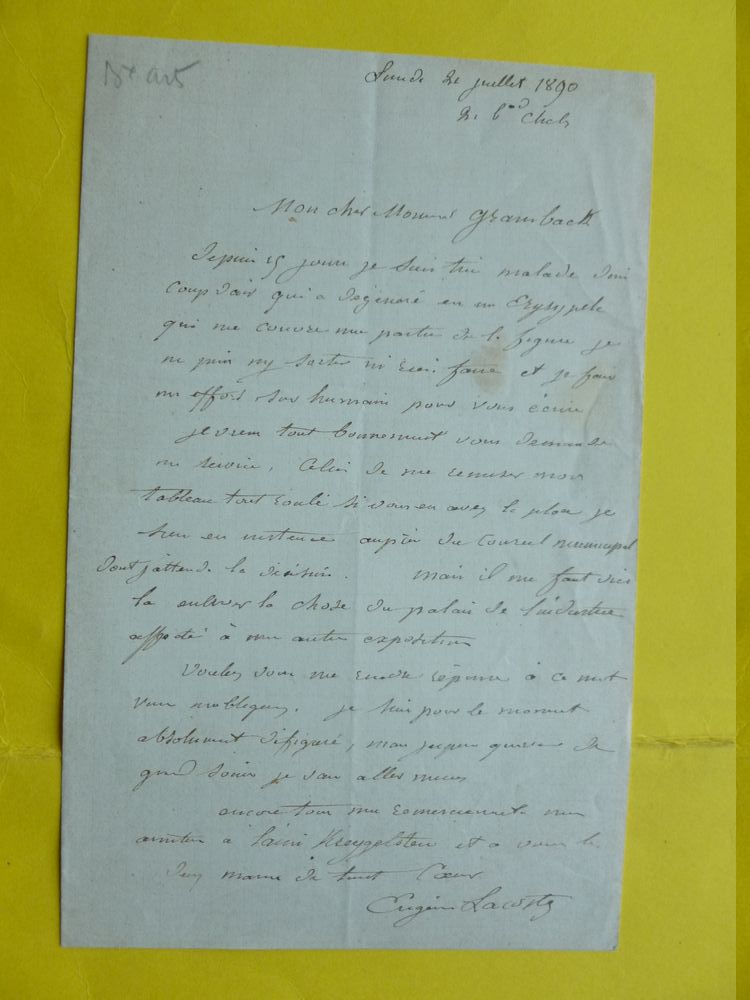 Bx arts
Lundi 21 juillet 1890
21 bd Clichy
Mon cher Monsieur
Depuis 15 jours je suis très malade d'un
coup d'air qui a dégénéré en un Erysypele
qui me couvre une partie de la figure je
ne puis ny sortir ni rien faire et je fais
un effort sur humain pour vous écrire
je viens tout bonnement vous demander
un service, Celui de me remiser mon
tableau tout roulé si vous en avez la place je
suis en instance auprès du Conseil municipal
dont j'attends la décision. mais il me faut d'ici
là enlever la chose du palais de l'industrie
affecté à une autre exposition
Voulez vous me rendre réponse à ce mot
vous m'obligerez. je suis pour le moment
absolument défiguré, mais j'espère qu'avec de
grands soins je vais aller mieux
encore tous mes remerciements mes
amitiés à l'ami et à vous les
deux mains de tout Cœur
Eugène Lacoste